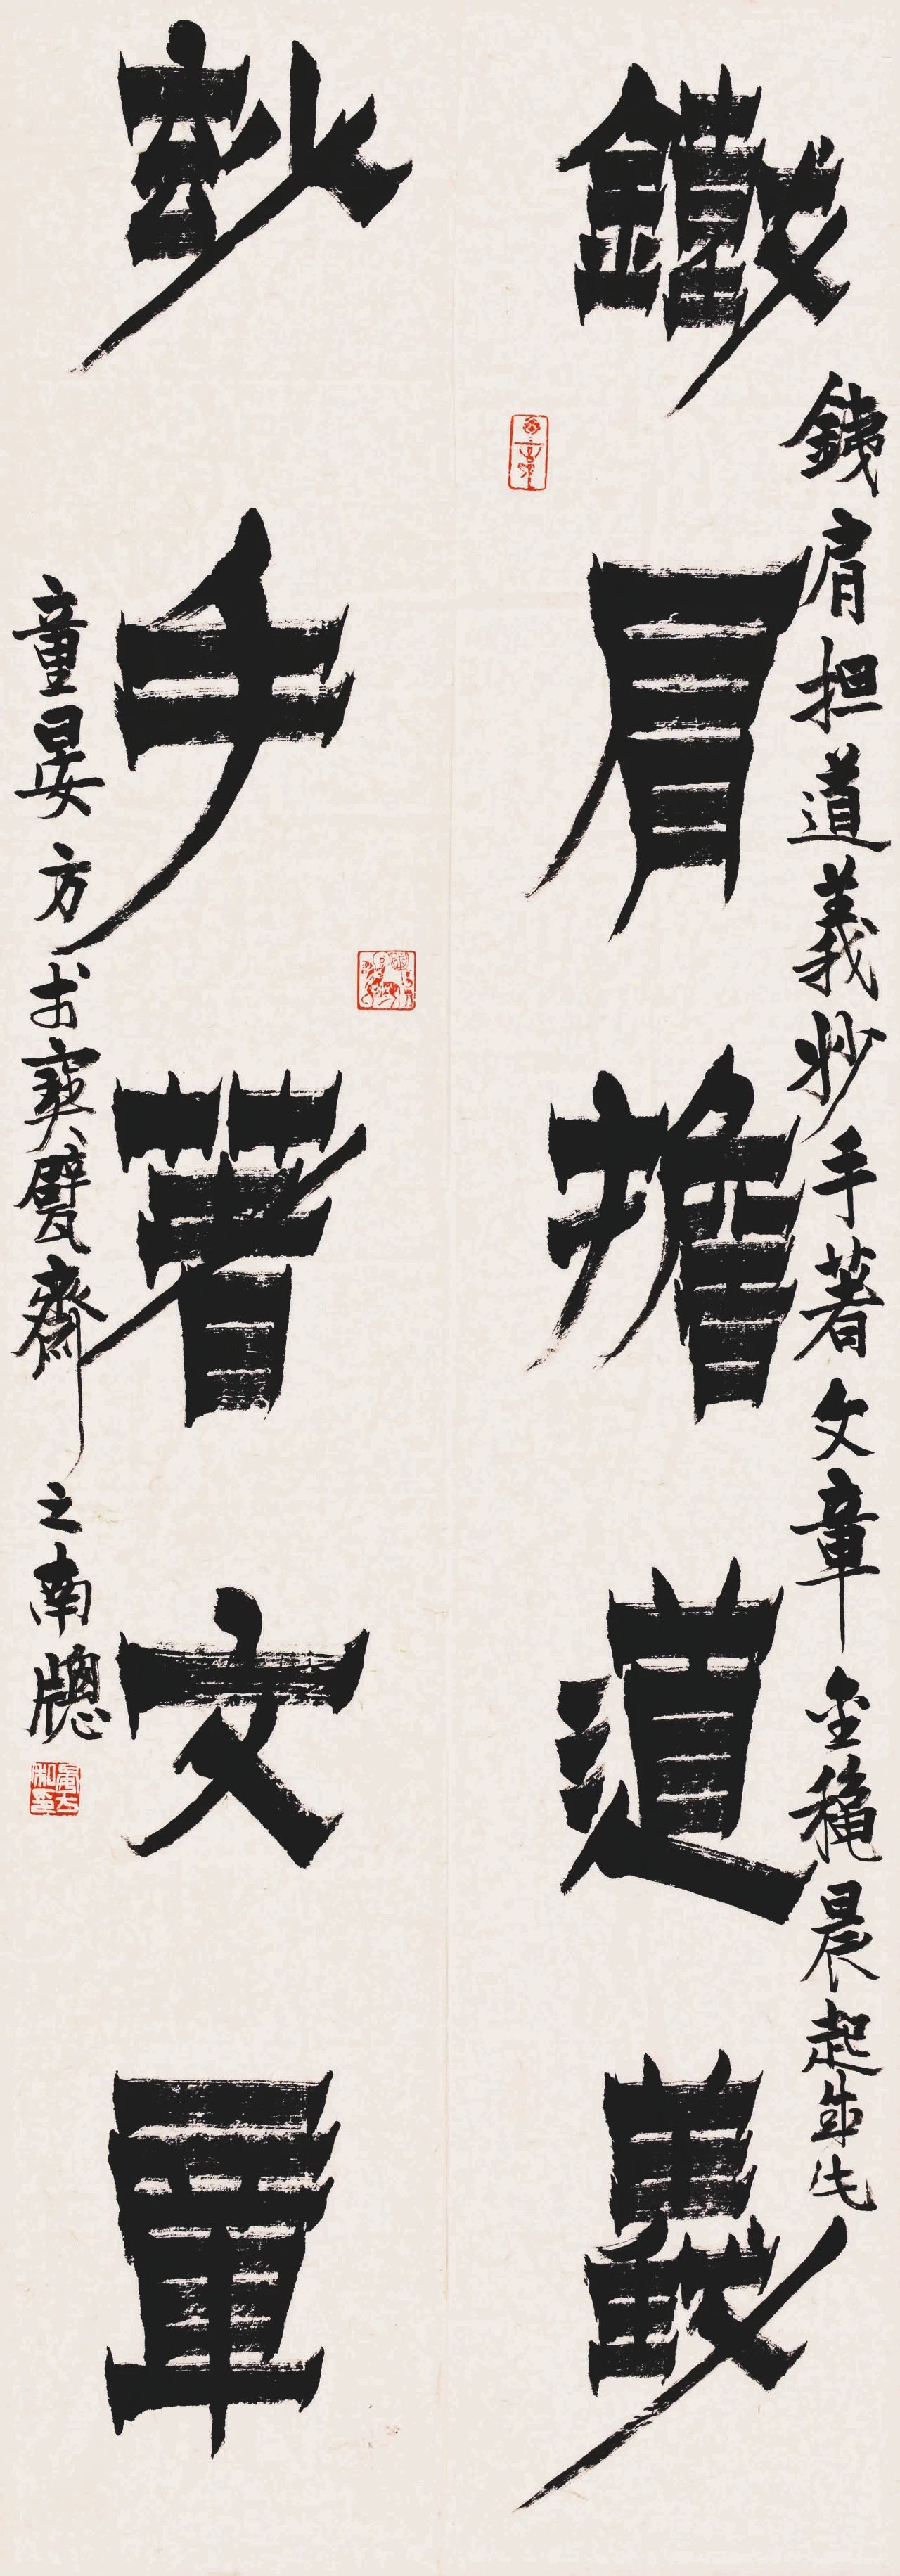 鐵肩擔道義
鐵肩担道義妙手著文章金穐晨起朱
妙手著文章
童晏方於寶甓齋之南牕